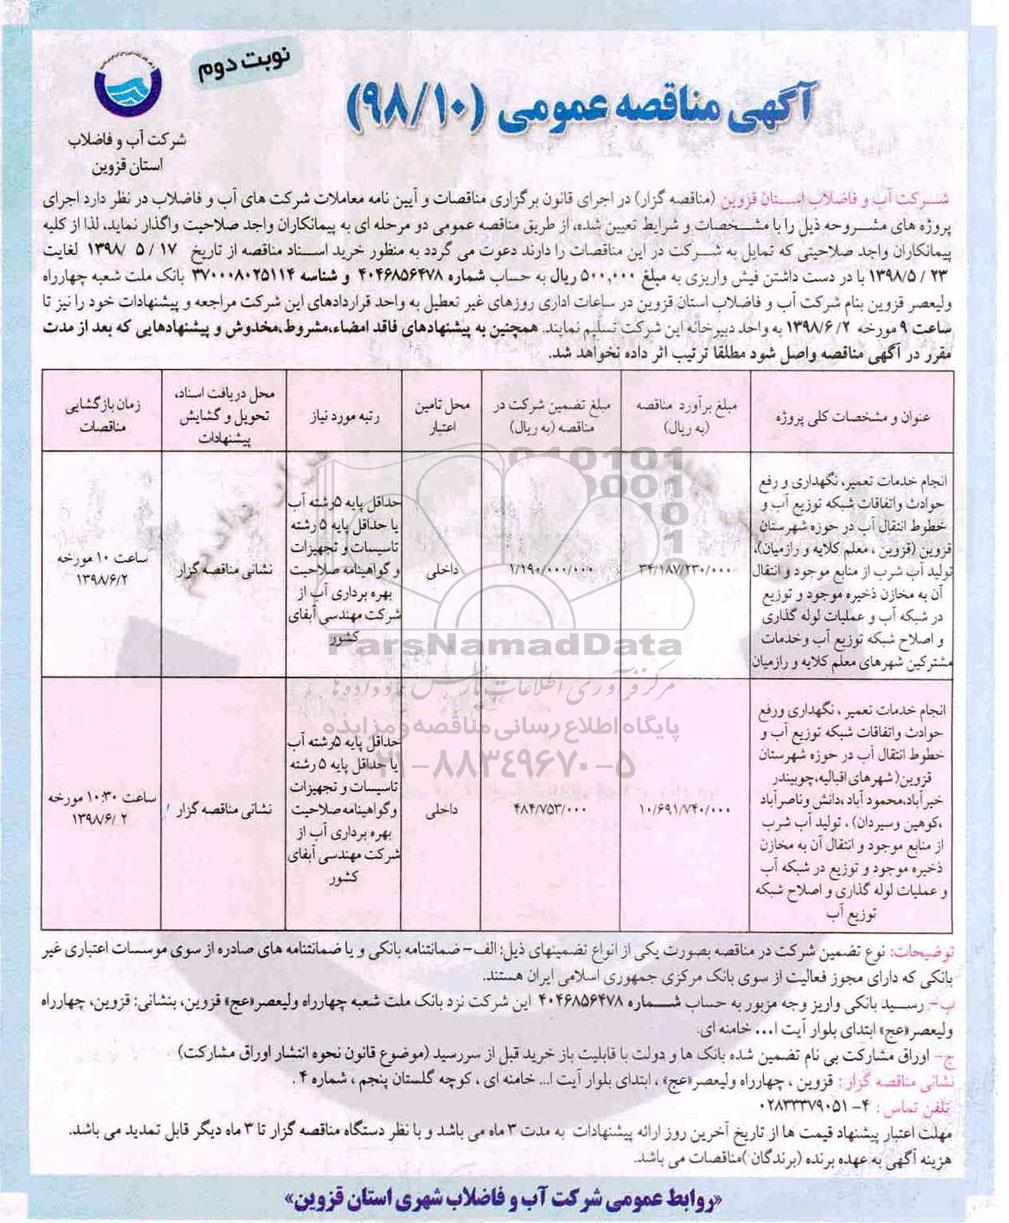 نوبت دوم
آگهی مناقصه عمومی (۹۸/۱۰)
شرکت آب و فاضلاب
استان قزوین
شرکت آب و فاضلاب استان قزوین (مناقصه گزار) در اجرای قانون برگزاری مناقصات و آیین نامه معاملات شرکت های آب و فاضلاب در نظر دارد اجرای
پروژه های مشروحه ذیل را با مشخصات و شرایط تعیین شده، از طریق مناقصه عمومی دو مرحله ای به پیمانکاران واجد صلاحیت واگذار نماید، لذا از کلیه
پیمانکاران واجد صلاحیتی که تمایل به شرکت در این مناقصات را دارند دعوت می گردد به منظور خرید اسناد مناقصه از تاریخ ۱۷ / ۵ / ۱۳۹۸ لغایت
۲۳ / ۱۳۹۸/۵ با در دست داشتن فیش واریزی به مبلغ ۵۰۰,۰۰۰ ریال به حساب شماره ۴۰۴۶۸۵۶۴۷۸ و شناسه ۳۷۰۰۰۸۰۲۵۱۱۴ بانک ملت شعبه چهارراه
ولیعصر قزوین بنام شرکت آب و فاضلاب استان قزوین در ساعات اداری روزهای غیر تعطیل به واحد قراردادهای این شرکت مراجعه و پیشنهادات خود را نیز تا
ساعت ۹ مورخه ۱۳۹۸/۶/۲ به واحد دبیرخانه این شرکت تسلیم نمایند. همچنین به پیشنهادهای فاقد امضاء،مشروط،مخدوش و پیشنهادهایی که بعد از مدت
مقرر در آگهی مناقصه واصل شود مطلقا ترتیب اثر داده نخواهد شد.
عنوان و مشخصات کلی پروژه
مبلغ برآورد مناقصه
(به ریال)
مبلغ تضمین شرکت در
مناقصه (به ریال)
محل تامین
اعتبار
رتبه مورد نیاز
محل دریافت اسناد،
تحویل و گشایش
پیشنهادات
زمان بازگشایی
مناقصات
انجام خدمات تعمیر، نگهداری و رفع
حوادث واتفاقات شبکه توزیع آب و
خطوط انتقال آب در حوزه شهرستان
قزوین (قزوین ، معلم کلایه و رازمیان)،
تولید آب شرب از منابع موجود و انتقال
آن به مخازن ذخیره موجود و توزیع
در شبکه آب و عملیات لوله گذاری
و اصلاح شبکه توزیع آب وخدمات
مشترکین شهرهای معلم کلایه و رازمیان
۳۴/۱۸۷/۲۳۰/۰۰۰
۱/۱۹۰/۰۰۰/۰۰۰
داخلی
حداقل پایه ۵رشته آب
یا حداقل پایه ۵ رشته
تاسیسات و تجهیزات
و گواهینامه صلاحیت
بهره برداری آب از
شرکت مهندسی آبفای
کشور
نشانی مناقصه گزار
ساعت ۱۰ مورخه
۱۳۹۸/۶/۲
انجام خدمات تعمیر ، نگهداری ورفع
حوادث واتفاقات شبکه توزیع آب و
خطوط انتقال آب در حوزه شهرستان
قزوین(شهرهای اقبالیه،چوبیندر
خیرآباد،محمود آباد،دانش وناصرآباد
،کوهین وسیردان) ، تولید آب شرب
از منابع موجود و انتقال آن به مخازن
ذخیره موجود و توزیع در شبکه آب
و عملیات لوله گذاری و اصلاح شبکه
توزیع آب
۱۰/۶۹۱/۷۴۰/۰۰۰
۴۸۴/۷۵۳/۰۰۰
داخلی
حداقل پایه ۵رشته آب
یا حداقل پایه ۵ رشته
تاسیسات و تجهیزات
وگواهینامه صلاحیت
بهره برداری آب از
شرکت مهندسی آبفای
کشور
نشانی مناقصه گزار
ساعت ۱۰:۳۰ مورخه
۱۳۹۸/۶/۲
ParsNamadData
مرکز فرآوری اطلاعات پارس نماد داده ها
پایگاه اطلاع رسانی مناقصه و مزایده
۰۲۱-۸۸۳۴۹۶۷۰-۵
توضیحات: نوع تضمین شرکت در مناقصه بصورت یکی از انواع تضمینهای ذیل: الف- ضمانتنامه بانکی و یا ضمانتنامه های صادره از سوی موسسات اعتباری غیر
بانکی که دارای مجوز فعالیت از سوی بانک مرکزی جمهوری اسلامی ایران هستند.
ب- رسید بانکی واریز وجه مزبور به حساب شماره ۴۰۴۶۸۵۶۴۷۸ این شرکت نزد بانک ملت شعبه چهارراه ولیعصر«عج» قزوین، بنشانی: قزوین، چهارراه
ولیعصر«عج» ابتدای بلوار آیت ا... خامنه ای.
ج- اوراق مشارکت بی نام تضمین شده بانک ها و دولت با قابلیت باز خرید قبل از سررسید (موضوع قانون نحوه انتشار اوراق مشارکت)
نشانی مناقصه گزار: قزوین ، چهارراه ولیعصر«عج» ، ابتدای بلوار آیت ا... خامنه ای ، کوچه گلستان پنجم ، شماره ۴ .
تلفن تماس : ۴- ۰۲۸۳۳۳۷۹۰۵۱
مهلت اعتبار پیشنهاد قیمت ها از تاریخ آخرین روز ارائه پیشنهادات به مدت ۳ ماه می باشد و با نظر دستگاه مناقصه گزار تا ۳ ماه دیگر قابل تمدید می باشد.
هزینه آگهی به عهده برنده (برندگان )مناقصات می باشد.
«روابط عمومی شرکت آب و فاضلاب شهری استان قزوین»